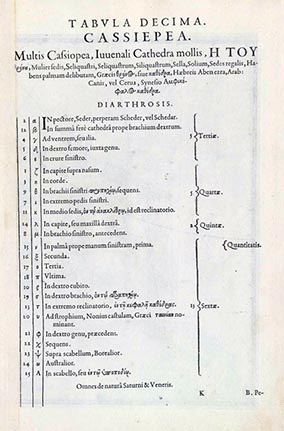 TABVLA DECIMA.
CASSIEPEA.
Multis Cassiopea, Iuuenali Cathedra mollis, Η ΤΟΥ
Mulier sedis, Seliquastri, Seliquastrum, Siliquastrum, Sella, Solium, Sedes regalis, Ha-
bens palmam delibutam, Græcis siue Hæbreis Aben ezra, Arab:
Canis, vel Cerua, Synesio
DIARTHROSIS.
1 α IN pectore, Seder, perperam Scheder, vel Schedar.
2 β In summâ ferè cathedrâ prope brachium dextrum.
4 γ Ad ventrem, seu ilia.
5 δ In dextro femore, iuxta genu.
6 ε In crure sinistro.
3 Tertiæ.
1 ζ In capite supra nasum.
3 η In corde.
9 θ In brachii sinistri sequens.
7 ι In extremo pedis sinistri.
11 κ In medio sedis, id est reclinatorio.
5 Quartæ.
14 λ In capite, seu maxillâ dextrâ.
8 μ In brachio sinistro, antecedens.
2 Quintæ.
15 ν In palmâ prope manum sinistram, prima.
16 ξ Secunda.
17 ο Tertia.
18 π Vltima.
10 ρ In dextro cubito.
19 σ In dextro brachio,
12 τ In extremo reclinatorio,
20 υ Ad strophium, Nonius castulam, Græci nominant.
21 φ In dextro genu, præcedens.
22 χ Sequens.
23 ψ Supra scabellum, Borealior.
24 ω Australior.
25 A In scabello, seu
13 Sextæ.
Quantitatis.
Omnes de naturâ Saturni & Veneris.
K B. Pe-